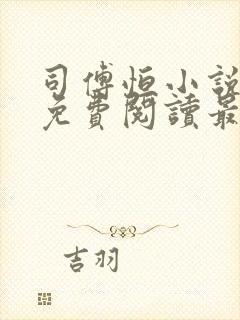 司傅恒小說
免費閱讀最
吉羽